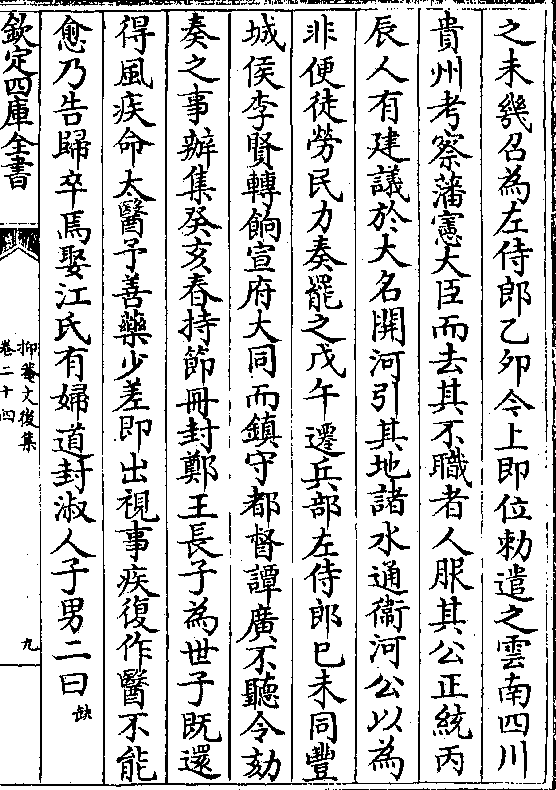 之未幾召為左侍郎乙夘今上即位勅遣之雲南四川
貴州考察藩憲大臣而去其不職者人服其公正統丙
辰人有建議於大名開河引其地諸水通衞河公以為
非便徒勞民力奏罷之戊午遷兵部左侍郎已未同豐
城侯李賢轉餉宣府大同而鎮守都督譚廣不聽令劾
奏之事辦集癸亥春持節冊封鄭王長子為世子既還
得風疾命太醫予善藥少差即出視事疾復作醫不能
愈乃告歸卒焉娶江氏有婦道封淑人子男二曰缺
欽定四庫全書
抑菴文後集
卷二十四
九